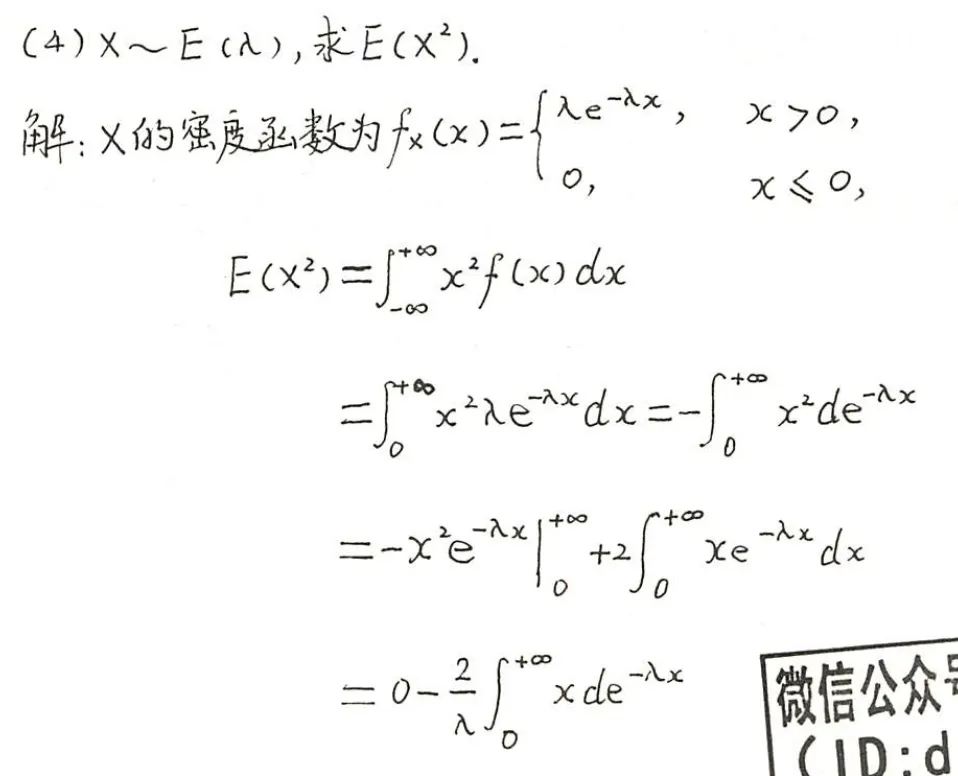 (4) X ~ E(λ), 求E(X²).
解: X的密度函数为 fₓ(x) = { λe^{-λx}, x > 0,
0, x ≤ 0,
E(X²) = ∫_{-∞}^{+∞} x² f(x) dx
= ∫_0^{+∞} x² λe^{-λx} dx = -∫_0^{+∞} x² de^{-λx}
= -x² e^{-λx} |_0^{+∞} + 2∫_0^{+∞} x e^{-λx} dx
= 0 - \frac{2}{λ} ∫_0^{+∞} x de^{-λx}
微信公众号
(ID:d